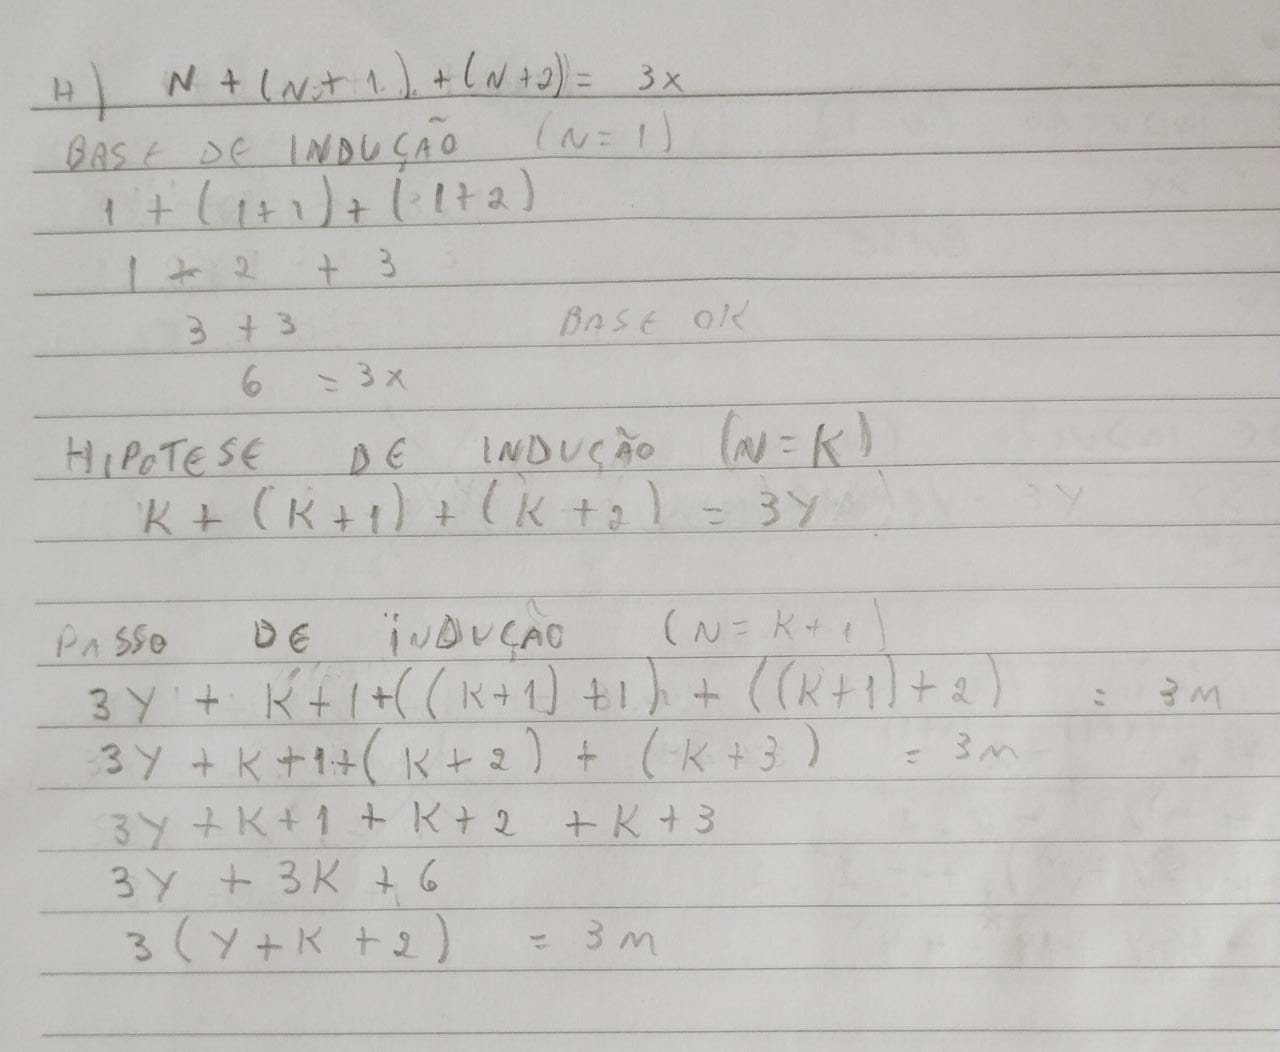 H) N + (N + 1) + (N + 2) = 3x
BASE DE INDUÇÃO (N = 1)
1 + (1 + 1) + (1 + 2)
1 + 2 + 3
3 + 3 BASE OK
6 = 3x
HIPOTESE DE INDUÇÃO (N = K)
K + (K + 1) + (K + 2) = 3Y
PASSO DE INDUÇÃO (N = K + 1)
3Y + K + 1 + ((K + 1) + 1) + ((K + 1) + 2) = 3M
3Y + K + 1 + (K + 2) + (K + 3) = 3M
3Y + K + 1 + K + 2 + K + 3
3Y + 3K + 6
3(Y + K + 2) = 3M